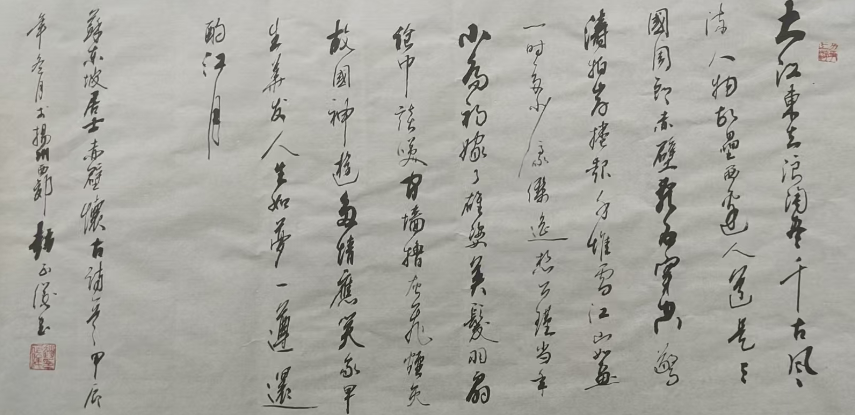 大江東去浪淘尽千古風
流人物故壘西邊人道是三
國周郎赤壁亂石穿空驚
濤拍岸捲起千堆雪江山如畫
一时多少豪傑遥想公瑾当年
小喬初嫁了雄姿英髮羽扇
纶巾談笑间墻橹灰飛煙滅
故國神遊多情應笑我早
生華发人生如夢一尊還
酹江月
蘇东坡居士赤壁懷古詞一首甲辰
年冬月书揚州西郊